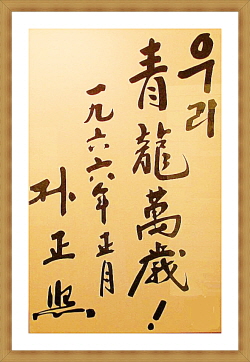 우리
青龍萬歲!
一九六六年 正月
朴正熙